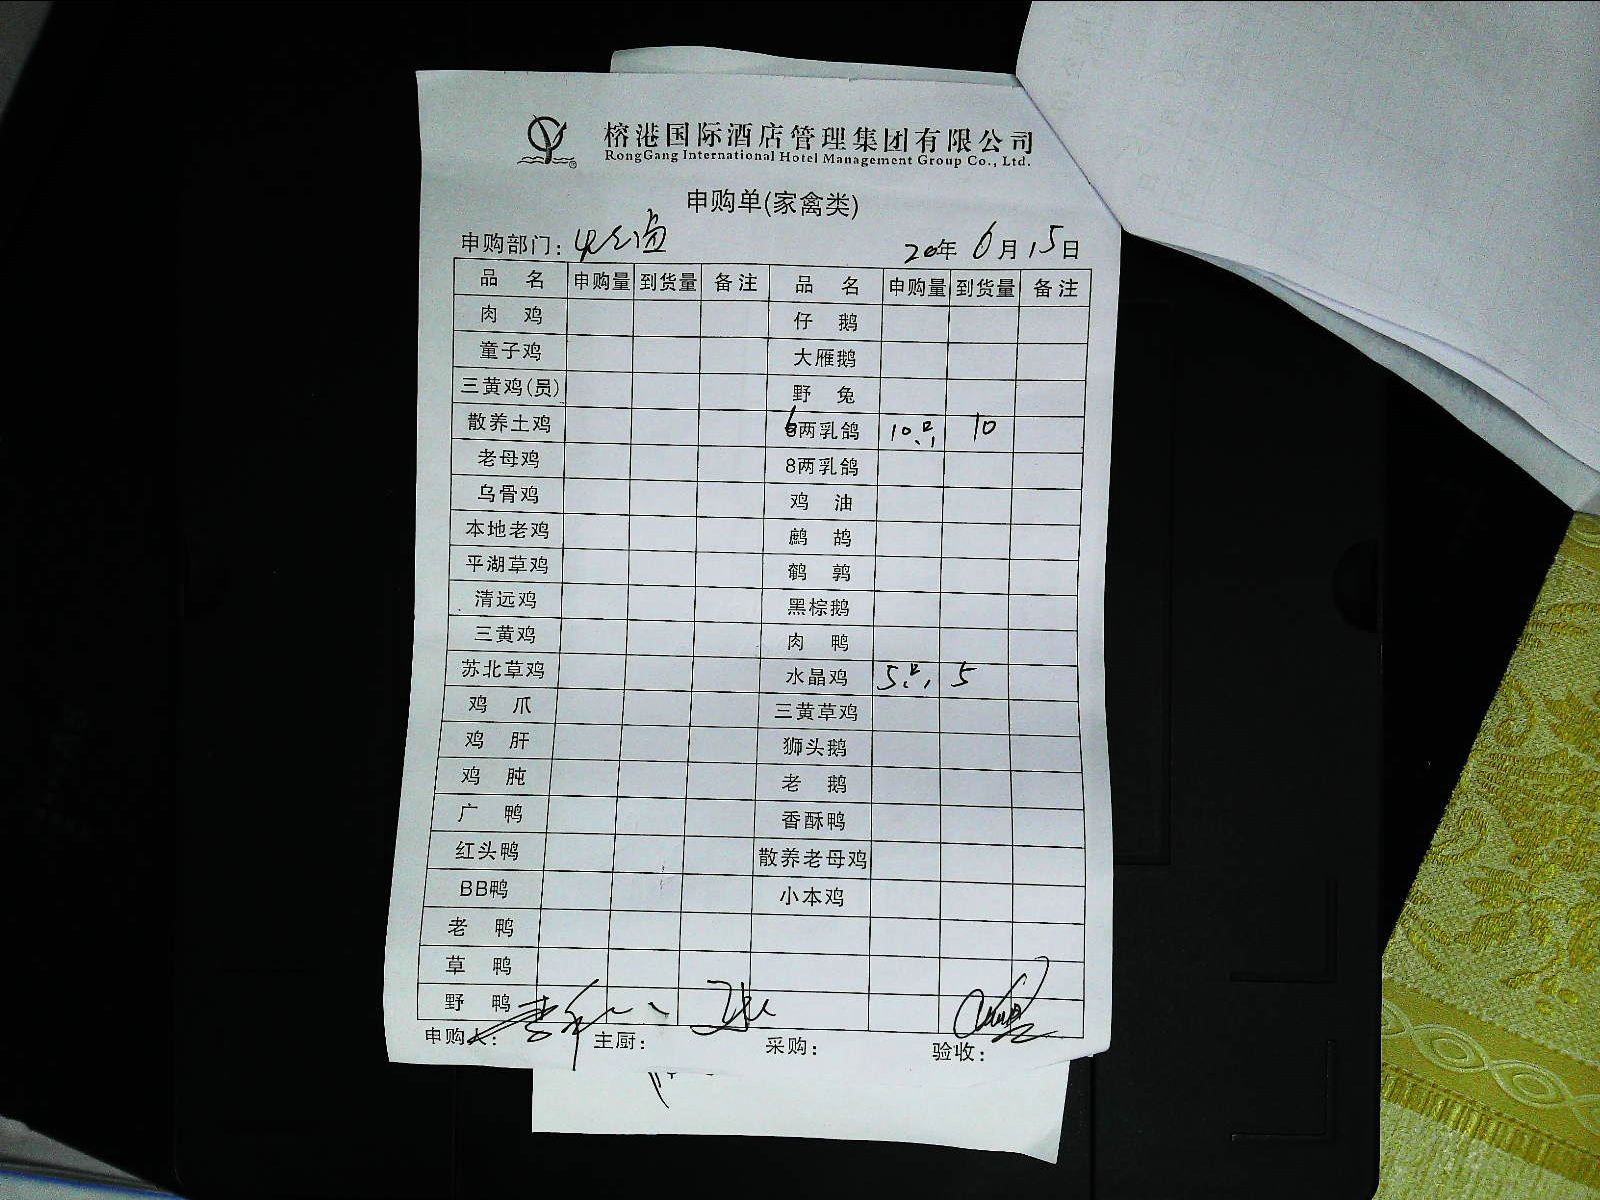 榕港国际酒店管理集团有限公司
RongGang International Hotel Management Group Co., Ltd.
申购单(家禽类)
申购部门:
20年 6月15日
品 名 申购量 到货量 备注 品 名 申购量 到货量 备注
肉 鸡 仔 鹅
童子鸡 大雁鹅
三黄鸡(员) 野 兔
散养土鸡 6两乳鸽 10只 10
老母鸡 8两乳鸽
乌骨鸡 鸡 油
本地老鸡 鹧 鸪
平湖草鸡 鹌 鹑
清远鸡 黑棕鹅
三黄鸡 肉 鸭
苏北草鸡 水晶鸡 5只 5
鸡 爪 三黄草鸡
鸡 肝 狮头鹅
鸡 肫 老 鹅
广 鸭 香酥鸭
红头鸭 散养老母鸡
BB鸭 小本鸡
老 鸭
草 鸭
野 鸭
申购人: 主厨: 采购: 验收: